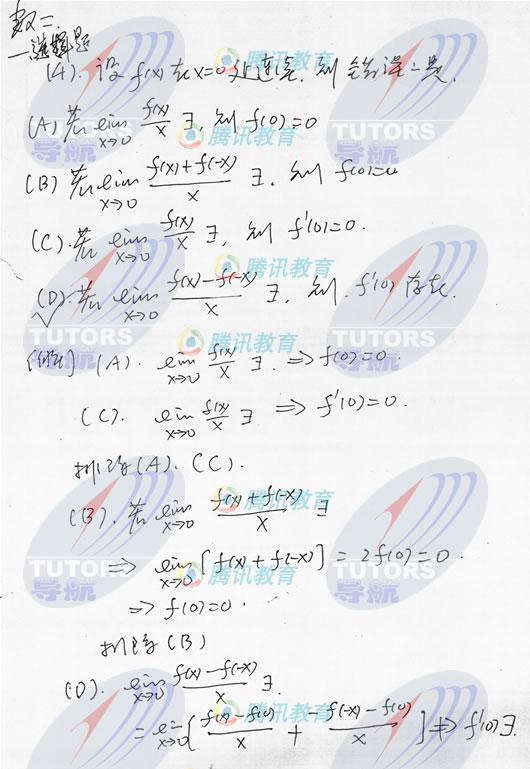 数二.
一选择题
(4). 设 f(x) 在 x=0 处连续. 则错误的是.
(A) 若 lim x→0 f(x)/x ∃. 则 f(0)=0
(B) 若 lim x→0 (f(x)+f(-x))/x ∃. 则 f(0)=0
(C). 若 lim x→0 f(x)/x ∃, 则 f'(0)=0.
(D). 若 lim x→0 (f(x)-f(-x))/x ∃, 则 f'(0) 存在.
[解] (A). lim x→0 f(x)/x ∃. ⇒ f(0)=0.
(C). lim x→0 f(x)/x ∃ ⇒ f'(0)=0.
排除 (A). (C).
(B). 若 lim x→0 (f(x)+f(-x))/x ∃
⇒ lim x→0 [f(x)+f(-x)] = 2f(0)=0.
⇒ f(0)=0.
排除 (B)
(D). lim x→0 (f(x)-f(-x))/x ∃.
= lim x→0 [(f(x)-f(0))/x + (f(-x)-f(0))/x] ⇏ f'(0)∃.
腾讯教育
TUTORS
导航